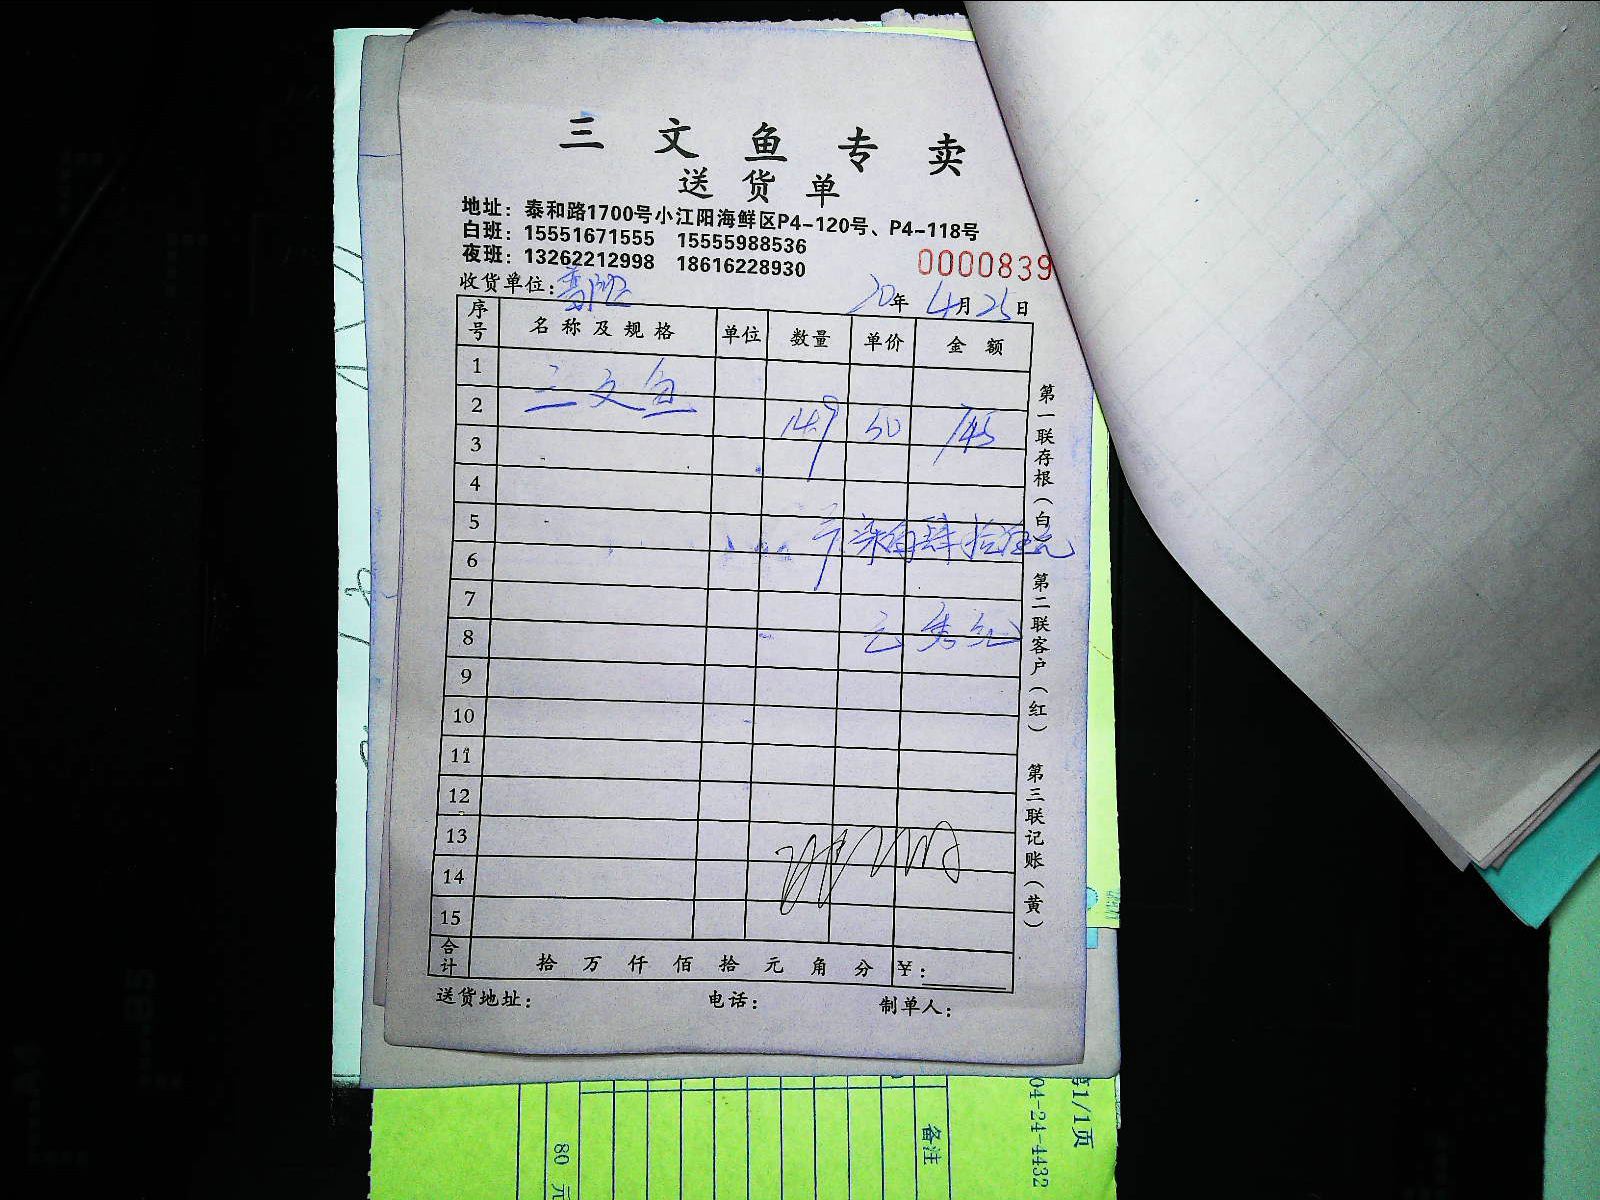 三文鱼专卖
送货单
地址：泰和路1700号小江阳海鲜区P4-120号、P4-118号
白班：15551671555 15555988536
夜班：13262212998 18616228930
0000839
收货单位：
20年4月25日
序号 名称及规格 单位 数量 单价 金额
1
2 三文鱼 14.9 50 745
3
4
5 柒佰肆拾伍元
6
7
8
9
10
11
12
13
14
15
合计 拾万仟佰拾元角分 ¥：
送货地址： 电话： 制单人：
第一联存根（白） 第二联客户（红） 第三联记账（黄）
备注
80 元
第1/1页
04-24-4432